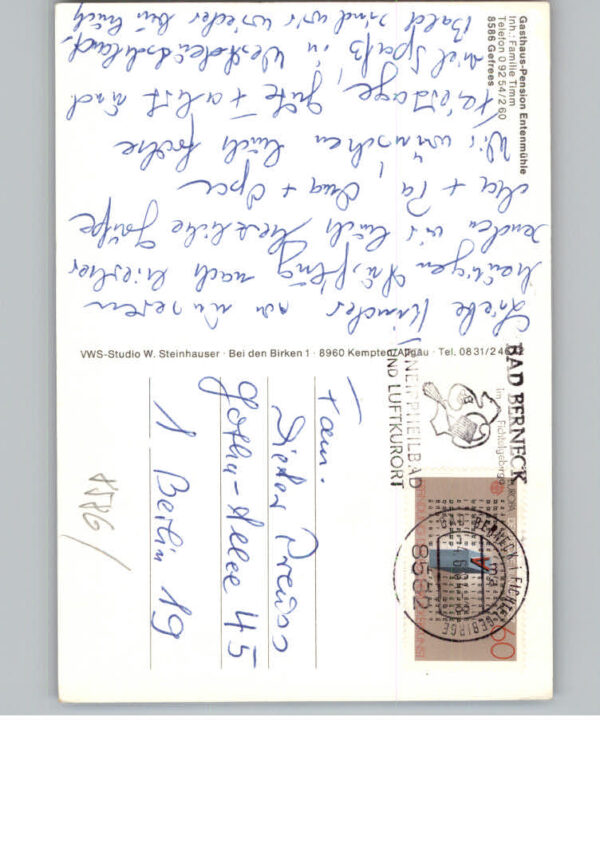 Gasthaus-Pension Entenmühle
Inh.: Familie Timm
Telefon 09254/260
8586 Gefrees
Liebe Kinder von unserem
heutigen Ausflug nach hierher
senden wir Euch herzliche Grüße
Ma + Pa, Oma + Opa
Wir wünschen Euch frohe
Festtage, gute Fahrt und
viel Spaß in Westdeutschland.
Bald sind wir wieder bei Euch
VWS-Studio W. Steinhauser · Bei den Birken 1 · 8960 Kempten/Allgäu · Tel. 0831/24
BAD BERNECK
im Fichtelgebirge
KNEIPPHEILBAD
UND LUFTKURORT
BERNECK I FICHTELGEBIRGE
8582
EUROPA
60
Fam.
Dieter Preuss
Gotha-Allee 45
1 Berlin 19
8586/